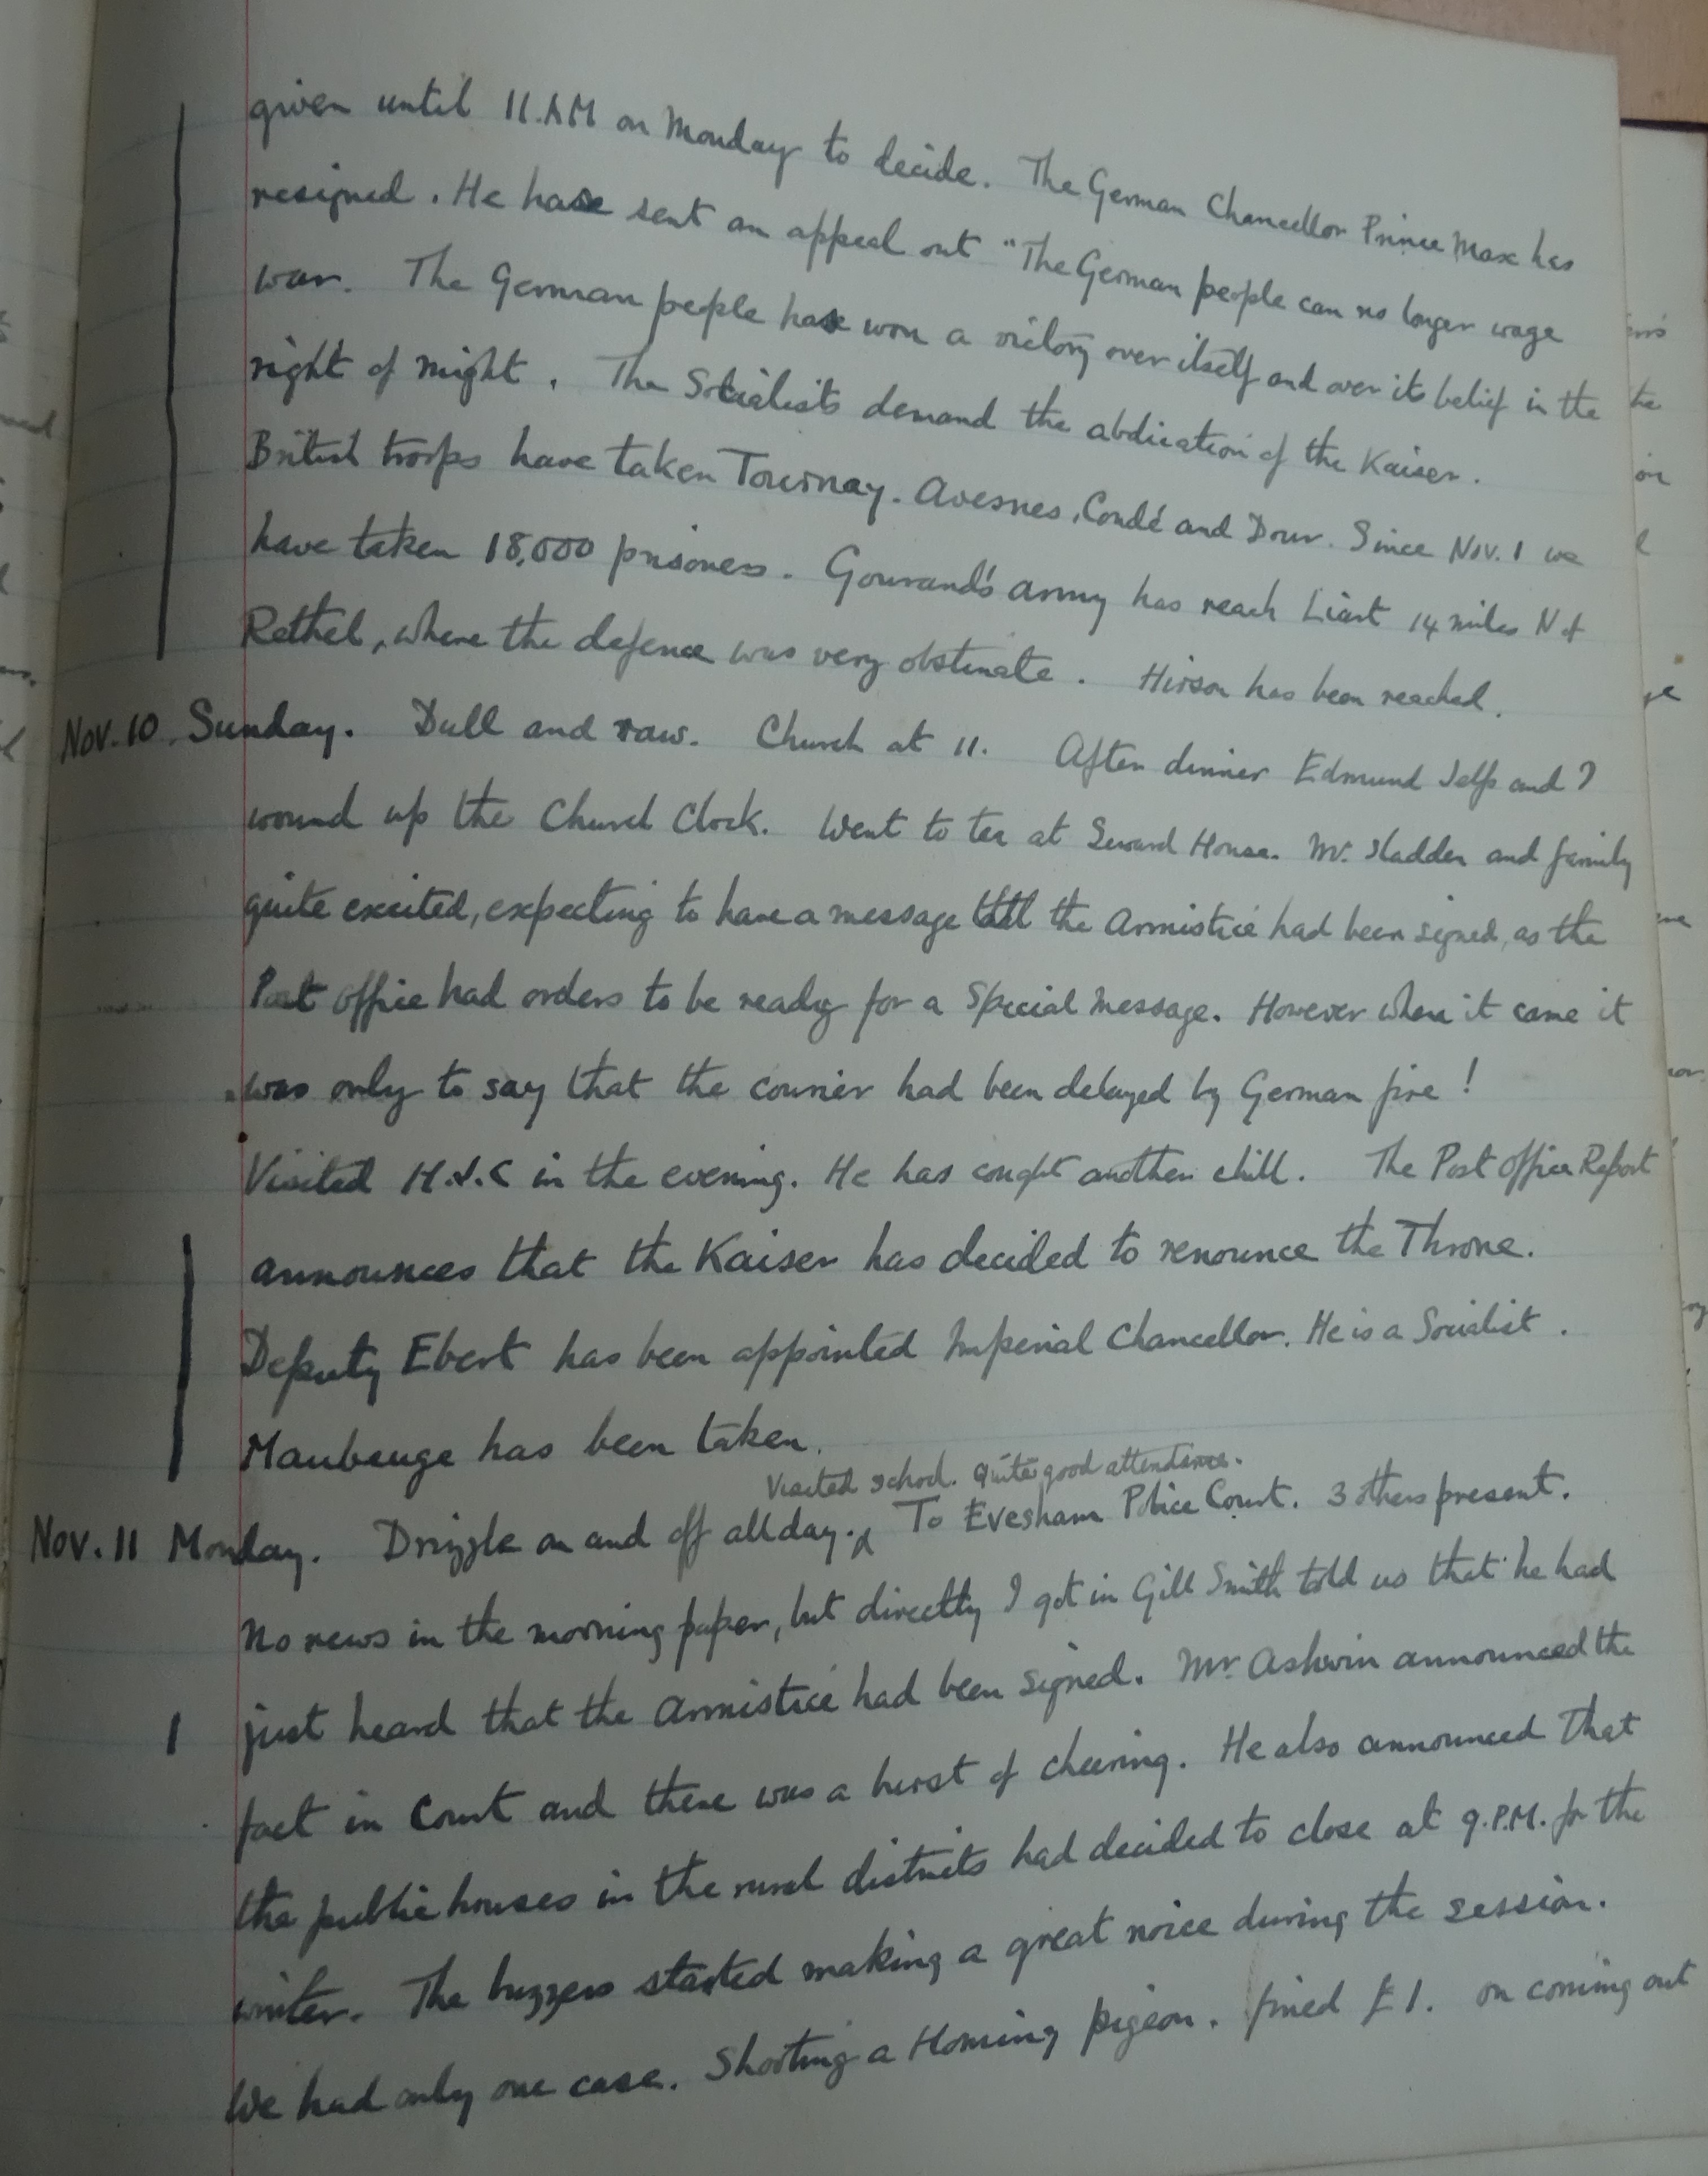 given until 11.AM on Monday to decide. The German Chancellor Prince Max has
resigned. He has sent an appeal out "The German people can no longer wage
war. The German people has won a victory over itself and over its belief in the
right of might. The Socialists demand the abdication of the Kaiser.
British troops have taken Tournay. Avesnes, Condé and Dour. Since Nov. 1 we
have taken 18,000 prisoners. Gouraud's army has reach Liart 14 miles N of
Rethel, where the defence was very obstinate. Hirson has been reached.
Nov. 10. Sunday. Dull and raw. Church at 11. After dinner Edmund Jelfs and I
wound up the Church Clock. Went to tea at Seward House. Mr. Sladden and family
quite excited, expecting to have a message that the Armistice had been signed, as the
Post office had orders to be ready for a Special Message. However when it came it
was only to say that the courier had been delayed by German fire!
Visited H.S.C in the evening. He has caught another chill. The Post Office Report
announces that the Kaiser has decided to renounce the Throne.
Deputy Ebert has been appointed Imperial Chancellor. He is a Socialist.
Maubeuge has been taken.
Visited school. Quite good attendance.
Nov. 11 Monday. Drizzle on and off all day. To Evesham Police Court. 3 others present.
No news in the morning paper, but directly I got in Gill Smith told us that he had
just heard that the Armistice had been signed. Mr. Ashwin announced the
fact in Court and there was a burst of cheering. He also announced that
the public houses in the rural districts had decided to close at 9.P.M. for the
winter. The buzzers started making a great noise during the session.
We had only one case. Shooting a Homing pigeon. fined £1. On coming out